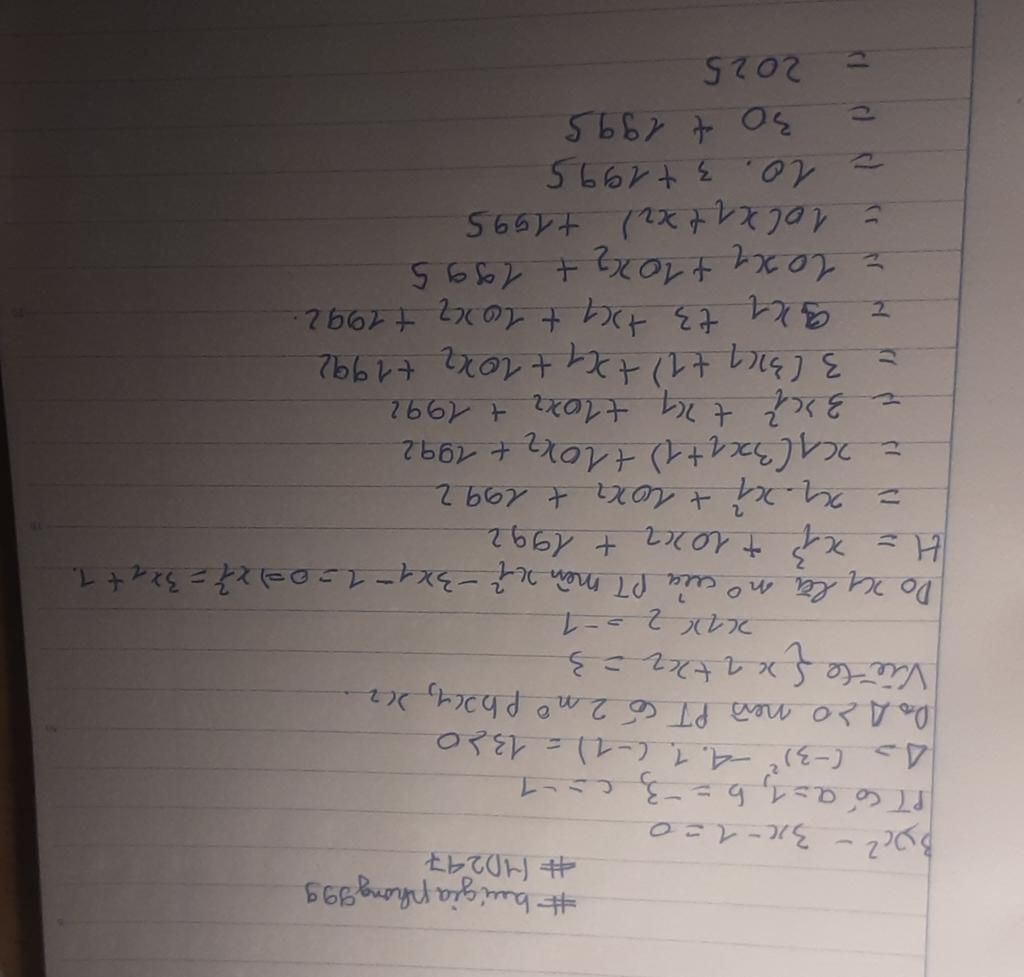 #buigiaphong999
#MD247
3) x² - 3x - 1 = 0
PT có a = 1, b = -3, c = -1
Δ = (-3)² - 4.1.(-1) = 13 > 0
Do Δ > 0 nên PT có 2 n° pb x1, x2.
Vi-ète { x1 + x2 = 3
x1x2 = -1
Do x1 là n° của PT nên x1² - 3x1 - 1 = 0 => x1² = 3x1 + 1.
H = x1³ + 10x2 + 1992
= x1.x1² + 10x2 + 1992
= x1(3x1+1) + 10x2 + 1992
= 3x1² + x1 + 10x2 + 1992
= 3(3x1 + 1) + x1 + 10x2 + 1992
= 9x1 + 3 + x1 + 10x2 + 1992.
= 10x1 + 10x2 + 1995
= 10(x1 + x2) + 1995
= 10. 3 + 1995
= 30 + 1995
= 2025